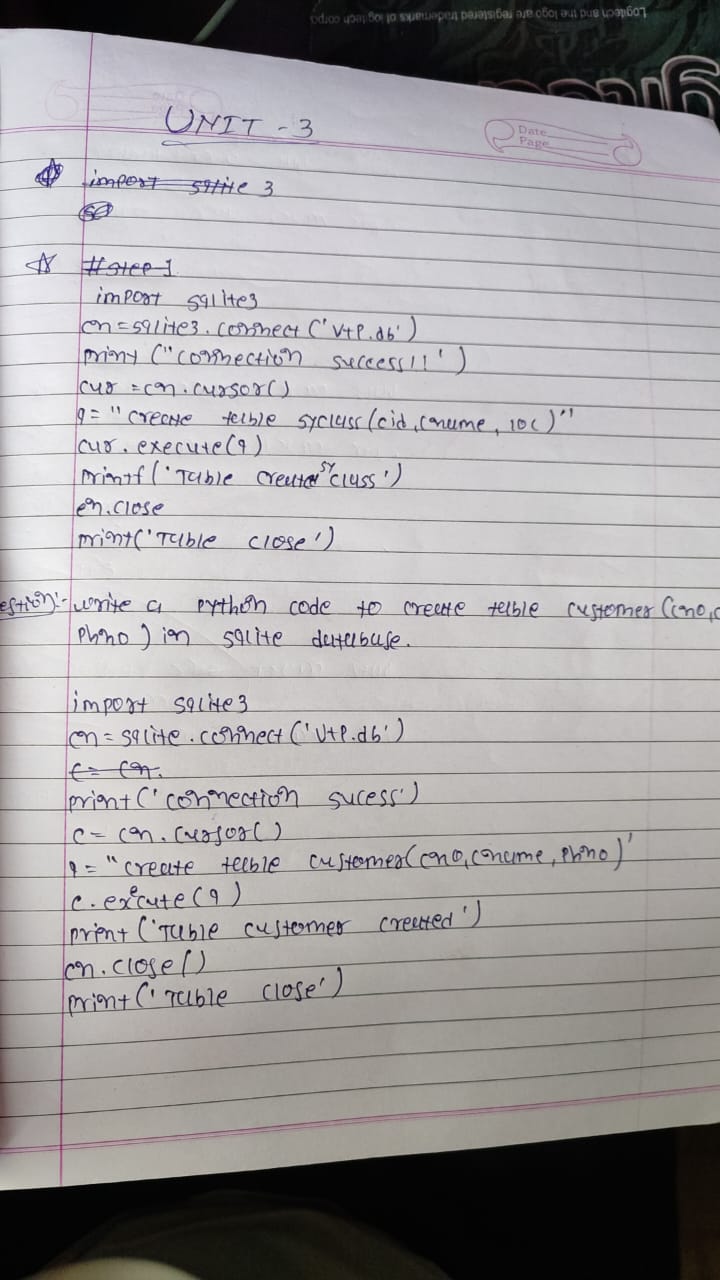 Logitech and the logo are registered trademarks of logitech corpo
UNIT - 3
Date
Page
import sqlite 3
#step-1
import sqlite3
cn=sqlite3.connect('VtP.db')
print ("connection success!!')
cur = cn.cursor()
q= "create table syclass(cid,cname, loc)"
cur.execute(q)
printf('Table created sy class')
cn.close
print('Table close')
estion:- write a python code to create table customer (cno,c
Phno) in sqlite database.
import sqlite3
cn= sqlite.connect('VtP.db')
c= cn.
print('connection sucess')
c= cn.cursor()
q= "create table customer(cno,cname, Phno)'
c.execute(q)
print('Table customer created')
cn.close()
print('Table close')